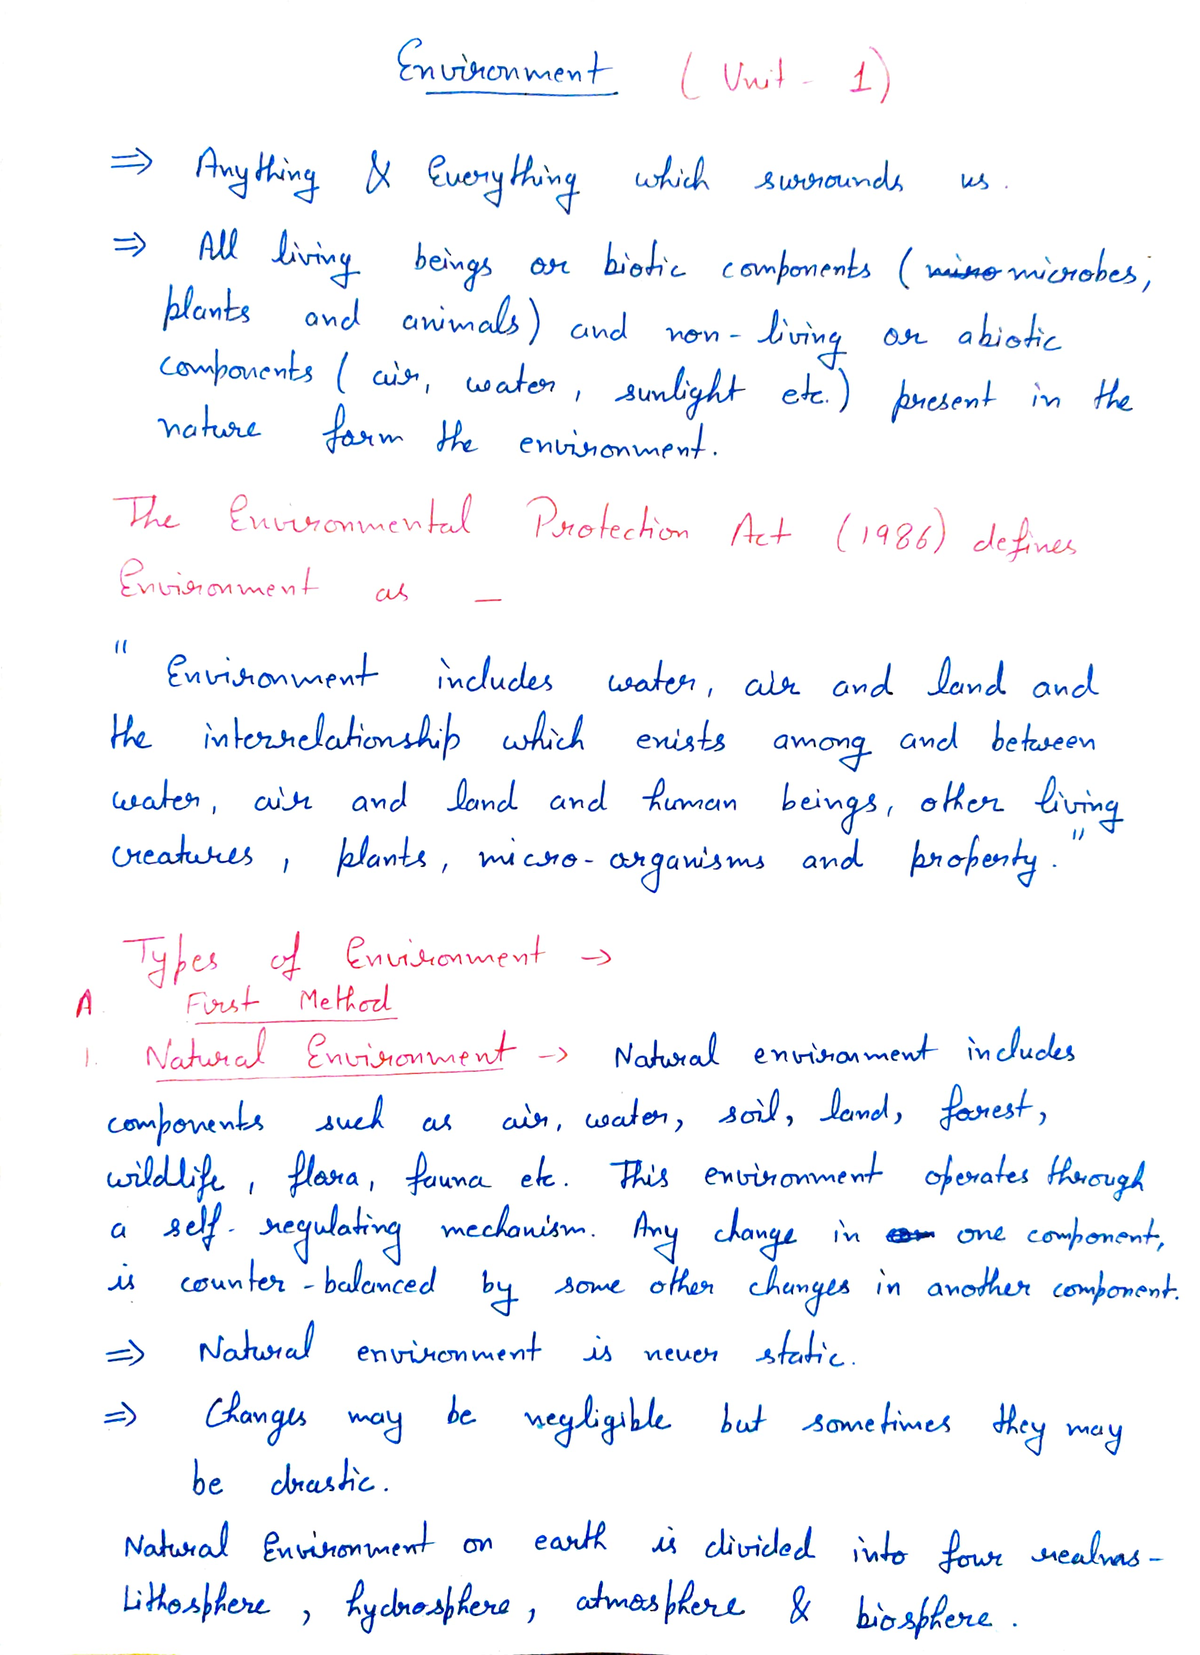 Environment (Unit - 1)
⇒ Anything & Everything which surrounds us.
⇒ All living beings or biotic components (micro microbes,
plants and animals) and non-living or abiotic
components (air, water, sunlight etc.) present in the
nature form the environment.
The Environmental Protection Act (1986) defines
Environment as —
" Environment includes water, air and land and
the interrelationship which exists among and between
water, air and land and human beings, other living
creatures, plants, micro-organisms and property."
Types of Environment →
A. First Method
1. Natural Environment → Natural environment includes
components such as air, water, soil, land, forest,
wildlife, flora, fauna etc. This environment operates through
a self-regulating mechanism. Any change in one component,
is counter-balanced by some other changes in another component.
⇒ Natural environment is never static.
⇒ Changes may be negligible but sometimes they may
be drastic.
Natural Environment on earth is divided into four realms -
Lithosphere, hydrosphere, atmosphere & biosphere.